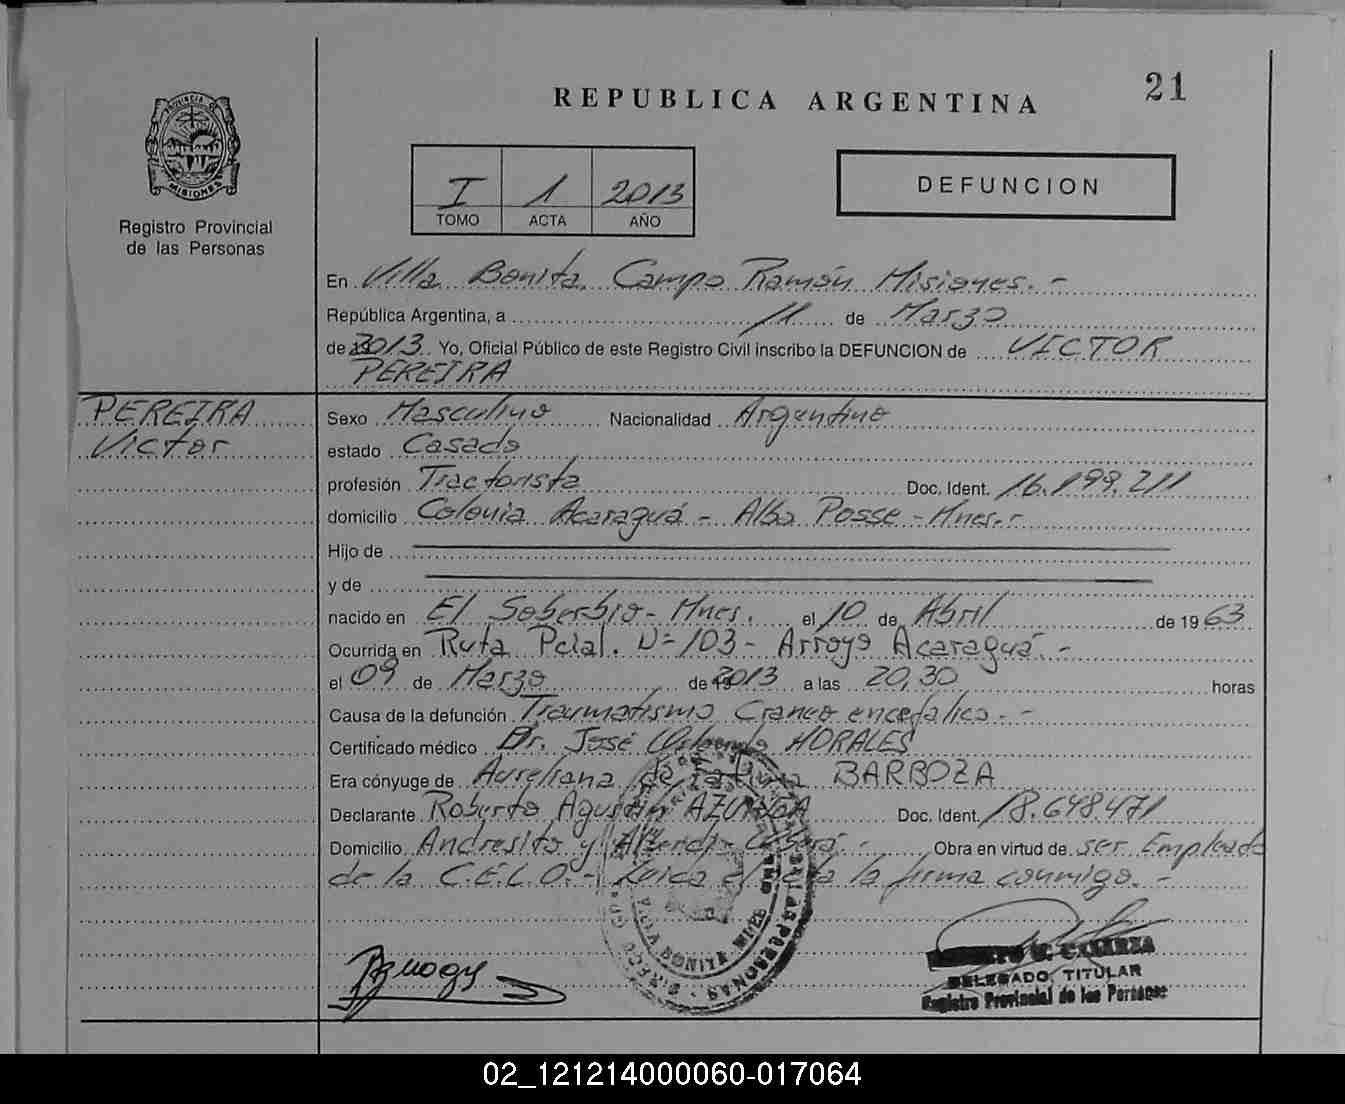 21
REPUBLICA ARGENTINA
PROVINCIA DE
MISIONES
Registro Provincial
de las Personas
I 1 2013
TOMO ACTA AÑO
DEFUNCION
En Villa Bonita. Campo Ramón Misiones.-
República Argentina, a 11 de Marzo
de 2013. Yo, Oficial Público de este Registro Civil inscribo la DEFUNCION de VICTOR
PEREIRA
PEREIRA
Victor
Sexo Masculino Nacionalidad Argentino
estado Casado
profesión Tractorista Doc. Ident. 16.199.211
domicilio Colonia Acaraguá - Alba Posse - Mnes.-
Hijo de
y de
nacido en El Soberbio - Mnes. el 10 de Abril de 1963
Ocurrida en Ruta Pcial. Nº 103 - Arroyo Acaraguá.-
el 09 de Marzo de 2013 a las 20,30 horas
Causa de la defunción Traumatismo Craneo encefalico.-
Certificado médico Dr. José MORALES
Era cónyuge de Aureliana BARBOZA
Declarante Roberto Agustin Doc. Ident. 18.648.471
Domicilio Andresito y Obra en virtud de ser Empleado
de la C.E.L.O.- la firma conmigo.-
VILLA BONITA MNES
LAS PERSONAS
DELEGADO TITULAR
Registro Provincial de las Personas
02_121214000060-017064